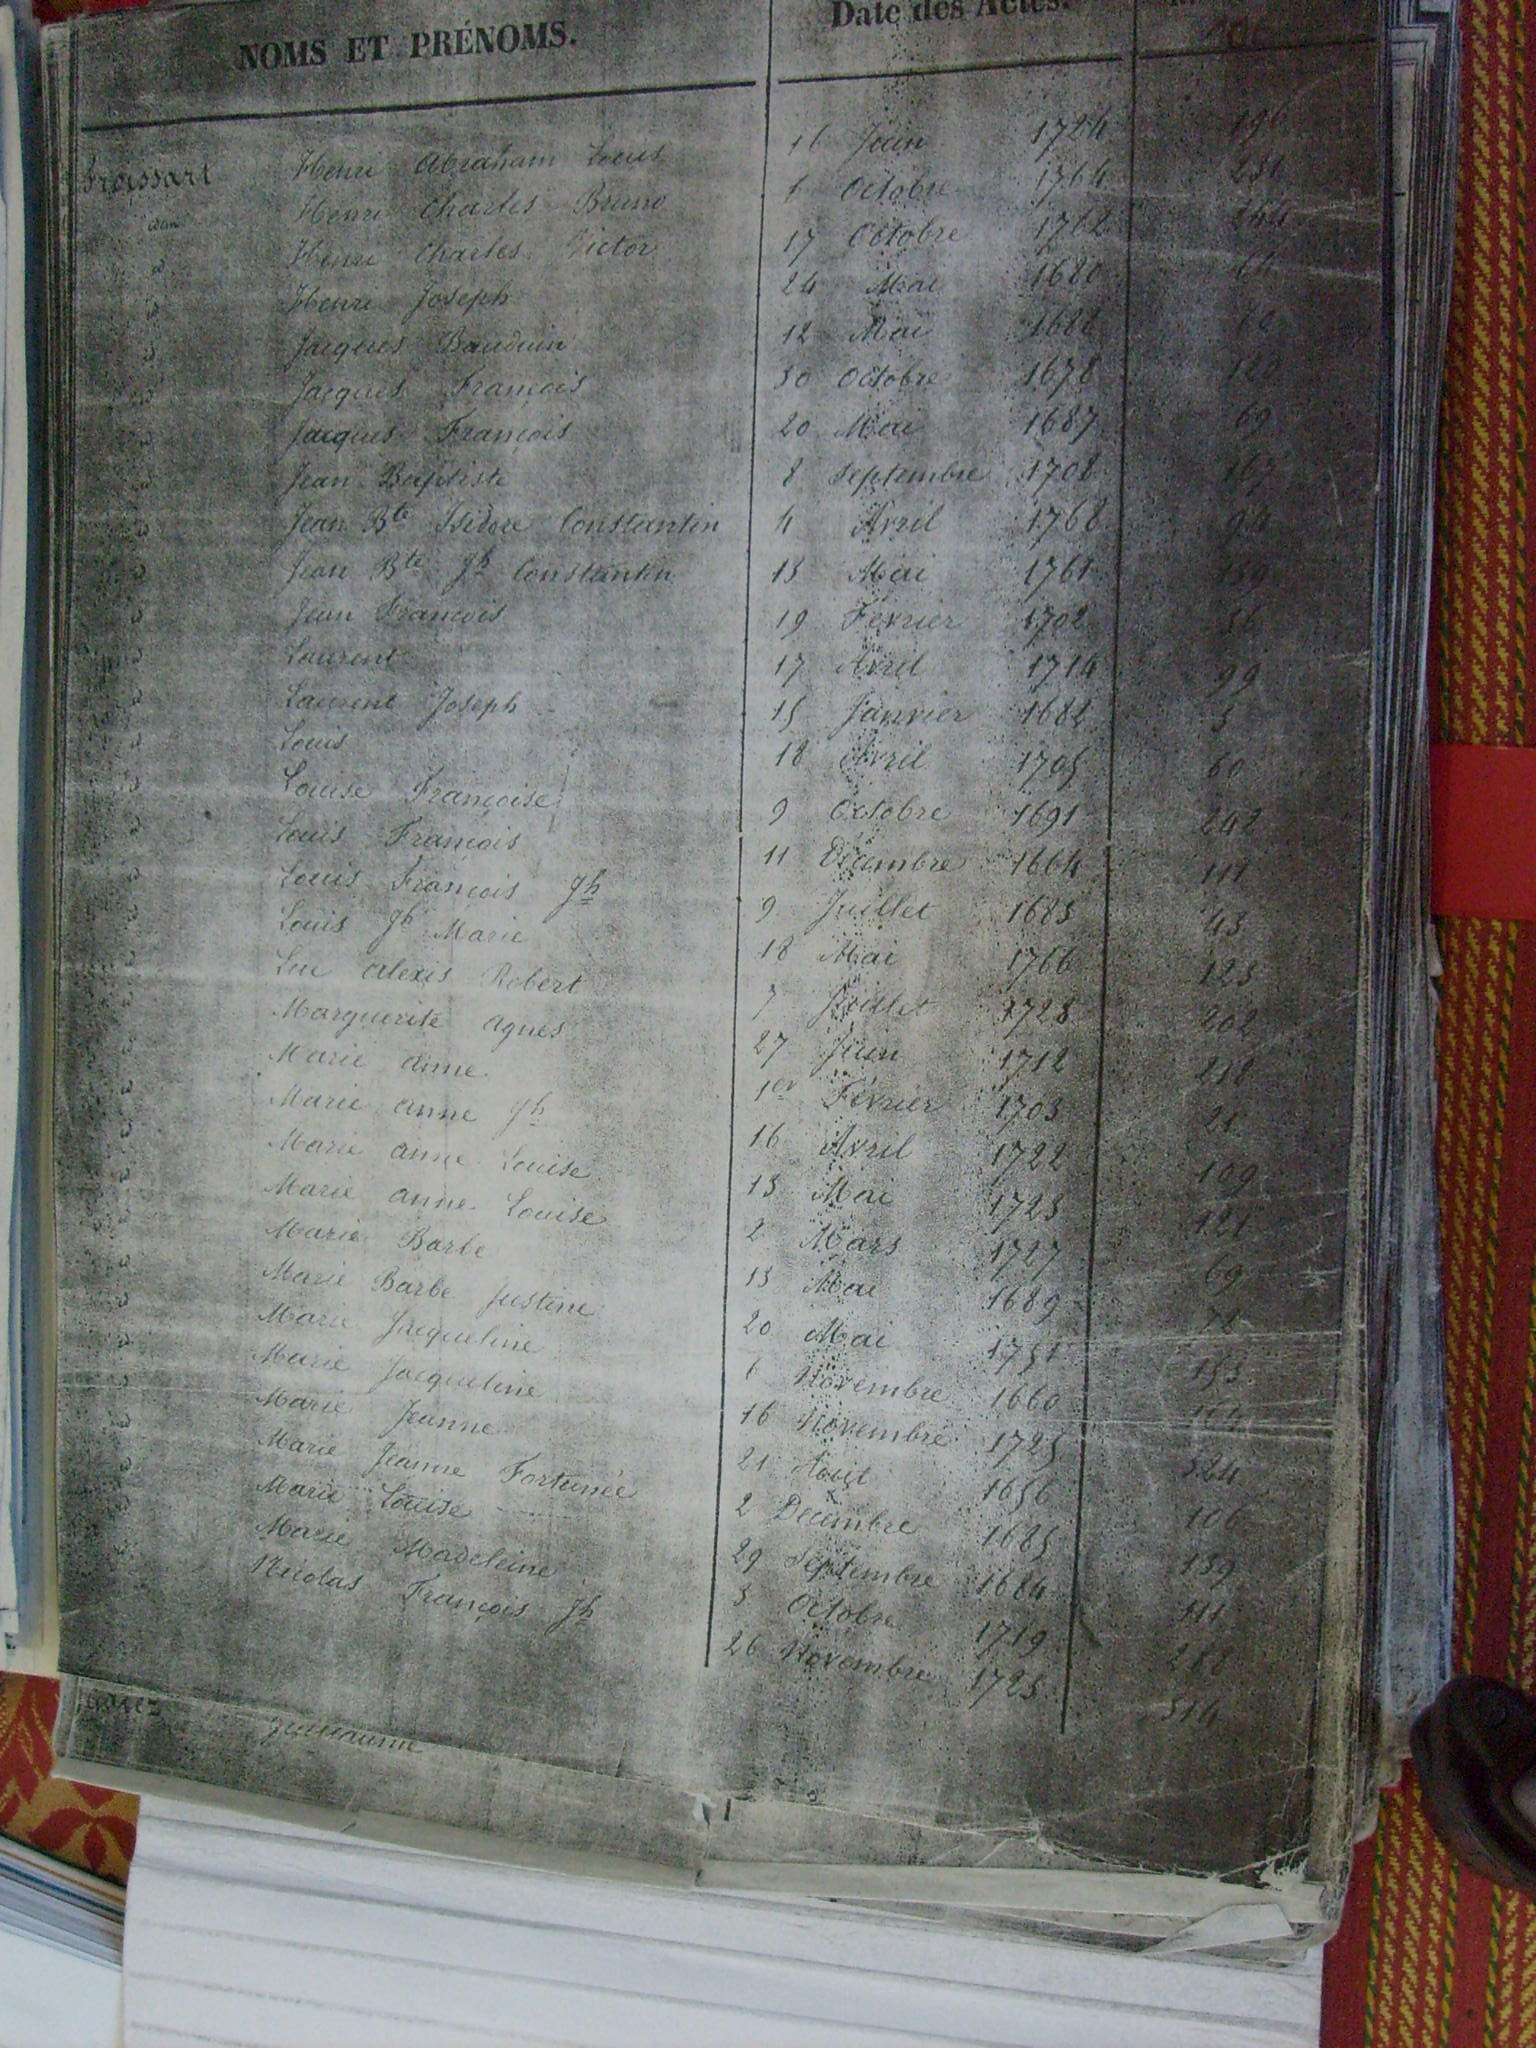 NOMS ET PRÉNOMS. Date des Actes.
Froissart Henri Abraham Louis 16 Juin 1724 196
Henri Charles Bruno 6 Octobre 1764 231
id Henri Charles Victor 17 Octobre 1762 244
id Henri Joseph 24 Mai 1680 64
id Jacques Bauduin 12 Mai 1682
id Jacques François 30 Octobre 1678 120
id Jacques François 20 Mai 1687 69
id Jean Baptiste 8 Septembre 1708 167
id Jean Bte Isidore Constantin 4 Avril 1768 94
id Jean Bte Jh Constantin 13 Mai 1761 139
id Jean François 19 Février 1702 36
id Laurent 17 Avril 1714 99
id Laurent Joseph 15 Janvier 1682 5
id Louis 18 Avril 1705 60
id Louise Françoise 9 Octobre 1691 242
id Louis François 11 Décembre 1664 111
id Louis François Jh 9 Juillet 1683 43
id Louis Jh Marie 18 Mai 1766 123
id Luc Alexis Robert 7 Juillet 1728 202
id Marguerite Agnes 27 Juin 1712 218
id Marie Anne 1er Février 1703 21
id Marie Anne Jh 16 Avril 1722 109
id Marie Anne Louise 13 Mai 1723 121
id Marie Anne Louise 2 Mars 1727 69
id Marie Barbe 13 Mai 1689 72
id Marie Barbe Justine 20 Mai 1751 153
id Marie Jacqueline 6 Novembre 1660
id Marie Jacqueline 16 Novembre 1725 324
id Marie Jeanne 21 Août 1656 106
id Marie Jeanne Fortunée 2 Décembre 1685 139
id Marie Louise 29 Septembre 1684 111
id Marie Madeleine 3 Octobre 1719 288
id Nicolas François Jh 26 Novembre 1723 314
Guillaume